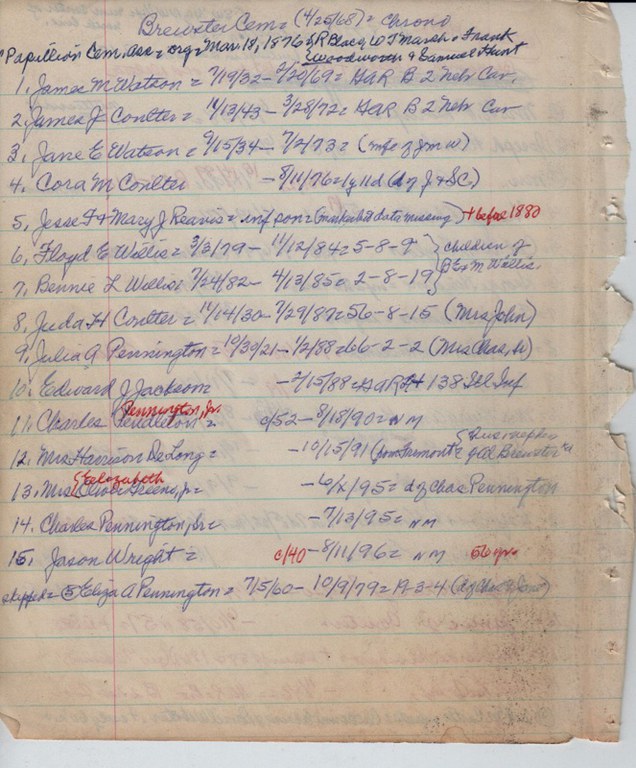 Brewster Cem = (4/25/68) = Chrono
"Papillion Cem. Ass = org = Mar 18, 1876 S R Blacq, W T Marsh + Frank
Woodworth & Samuel Hunt
1. James M Watson = 7/19/32 – 2/20/69 = GAR B 2 Nebr Cav.
2. James J Coulter = 11/13/43 – 3/28/72 = GAR B 2 Nebr Cav
3. Jane E Watson = 9/15/34 – 7/2/73 = (wife of J M W)
4. Cora M Coulter – 8/11/76 = 1y 11d (d of J & S C.)
5. Jesse F & Mary J Reaves = inf son = data missing) + before 1880
6. Floyd E Willis = 3/3/79 – 11/12/84 = 5-8-9 } children of
7. Bennie L Willis = 7/24/82 – 4/13/85 = 2-8-19 } & M Willis.
8. Juda H Coulter = 11/14/30 – 7/29/87 = 56-8-15 (Mrs John)
9. Julia A Pennington = 10/30/21 – 1/2/88 = 66-2-2 (Mrs Chas, Sr)
10. Edward J Jackson – 2/15/88 = GAR H 138 Ill Inf
Pennington, Jr.
11. Charles Pendleton = c/52 – 8/18/90 = NM
12. Mrs Harrison DeLong = – 10/15/91 (from Fremont =
Elizabeth
13. Mrs Greene, Jr = – 6/x/95 = d of Chas Pennington
14. Charles Pennington, Sr = – 7/13/95 = NM
15. Jason Wright = c/40 – 8/11/96 = NM 56 yrs
skipped = 5 Eliza A Pennington = 7/5/60 – 10/9/79 = 19-3-4